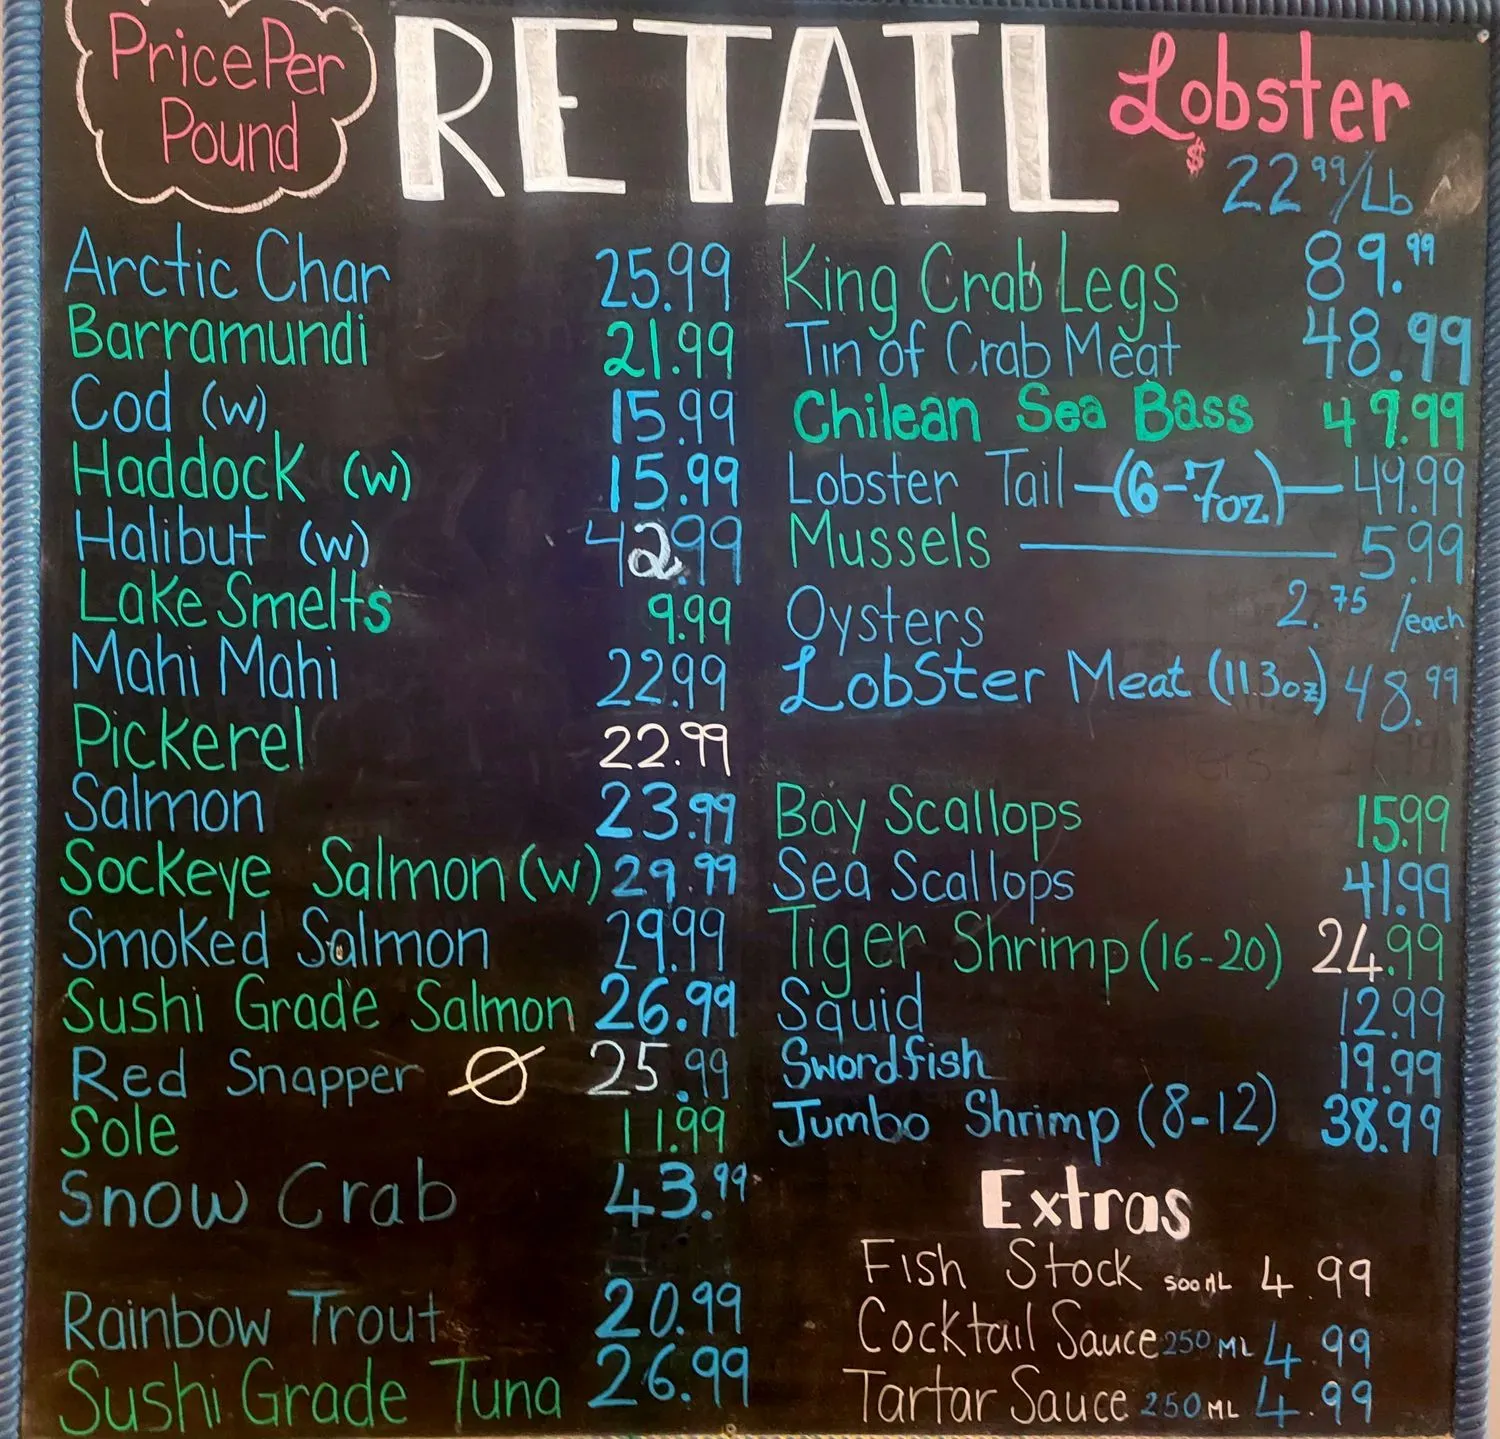 Price Per
Pound
RETAIL
Lobster
$ 22.99/Lb
Arctic Char 25.99
Barramundi 21.99
Cod (w) 15.99
Haddock (w) 15.99
Halibut (w) 42.99
Lake Smelts 9.99
Mahi Mahi 22.99
Pickerel 22.99
Salmon 23.99
Sockeye Salmon (w) 29.99
Smoked Salmon 29.99
Sushi Grade Salmon 26.99
Red Snapper Ø 25.99
Sole 11.99
Snow Crab 43.99
Rainbow Trout 20.99
Sushi Grade Tuna 26.99
King Crab Legs 89.99
Tin of Crab Meat 48.99
Chilean Sea Bass 49.99
Lobster Tail - (6-7oz.) - 49.99
Mussels — 5.99
Oysters 2.75 /each
Lobster Meat (11.3oz) 48.99
Bay Scallops 15.99
Sea Scallops 41.99
Tiger Shrimp (16-20) 24.99
Squid 12.99
Swordfish 19.99
Jumbo Shrimp (8-12) 38.99
Extras
Fish Stock 500 ML 4.99
Cocktail Sauce 250 ML 4.99
Tartar Sauce 250 ML 4.99